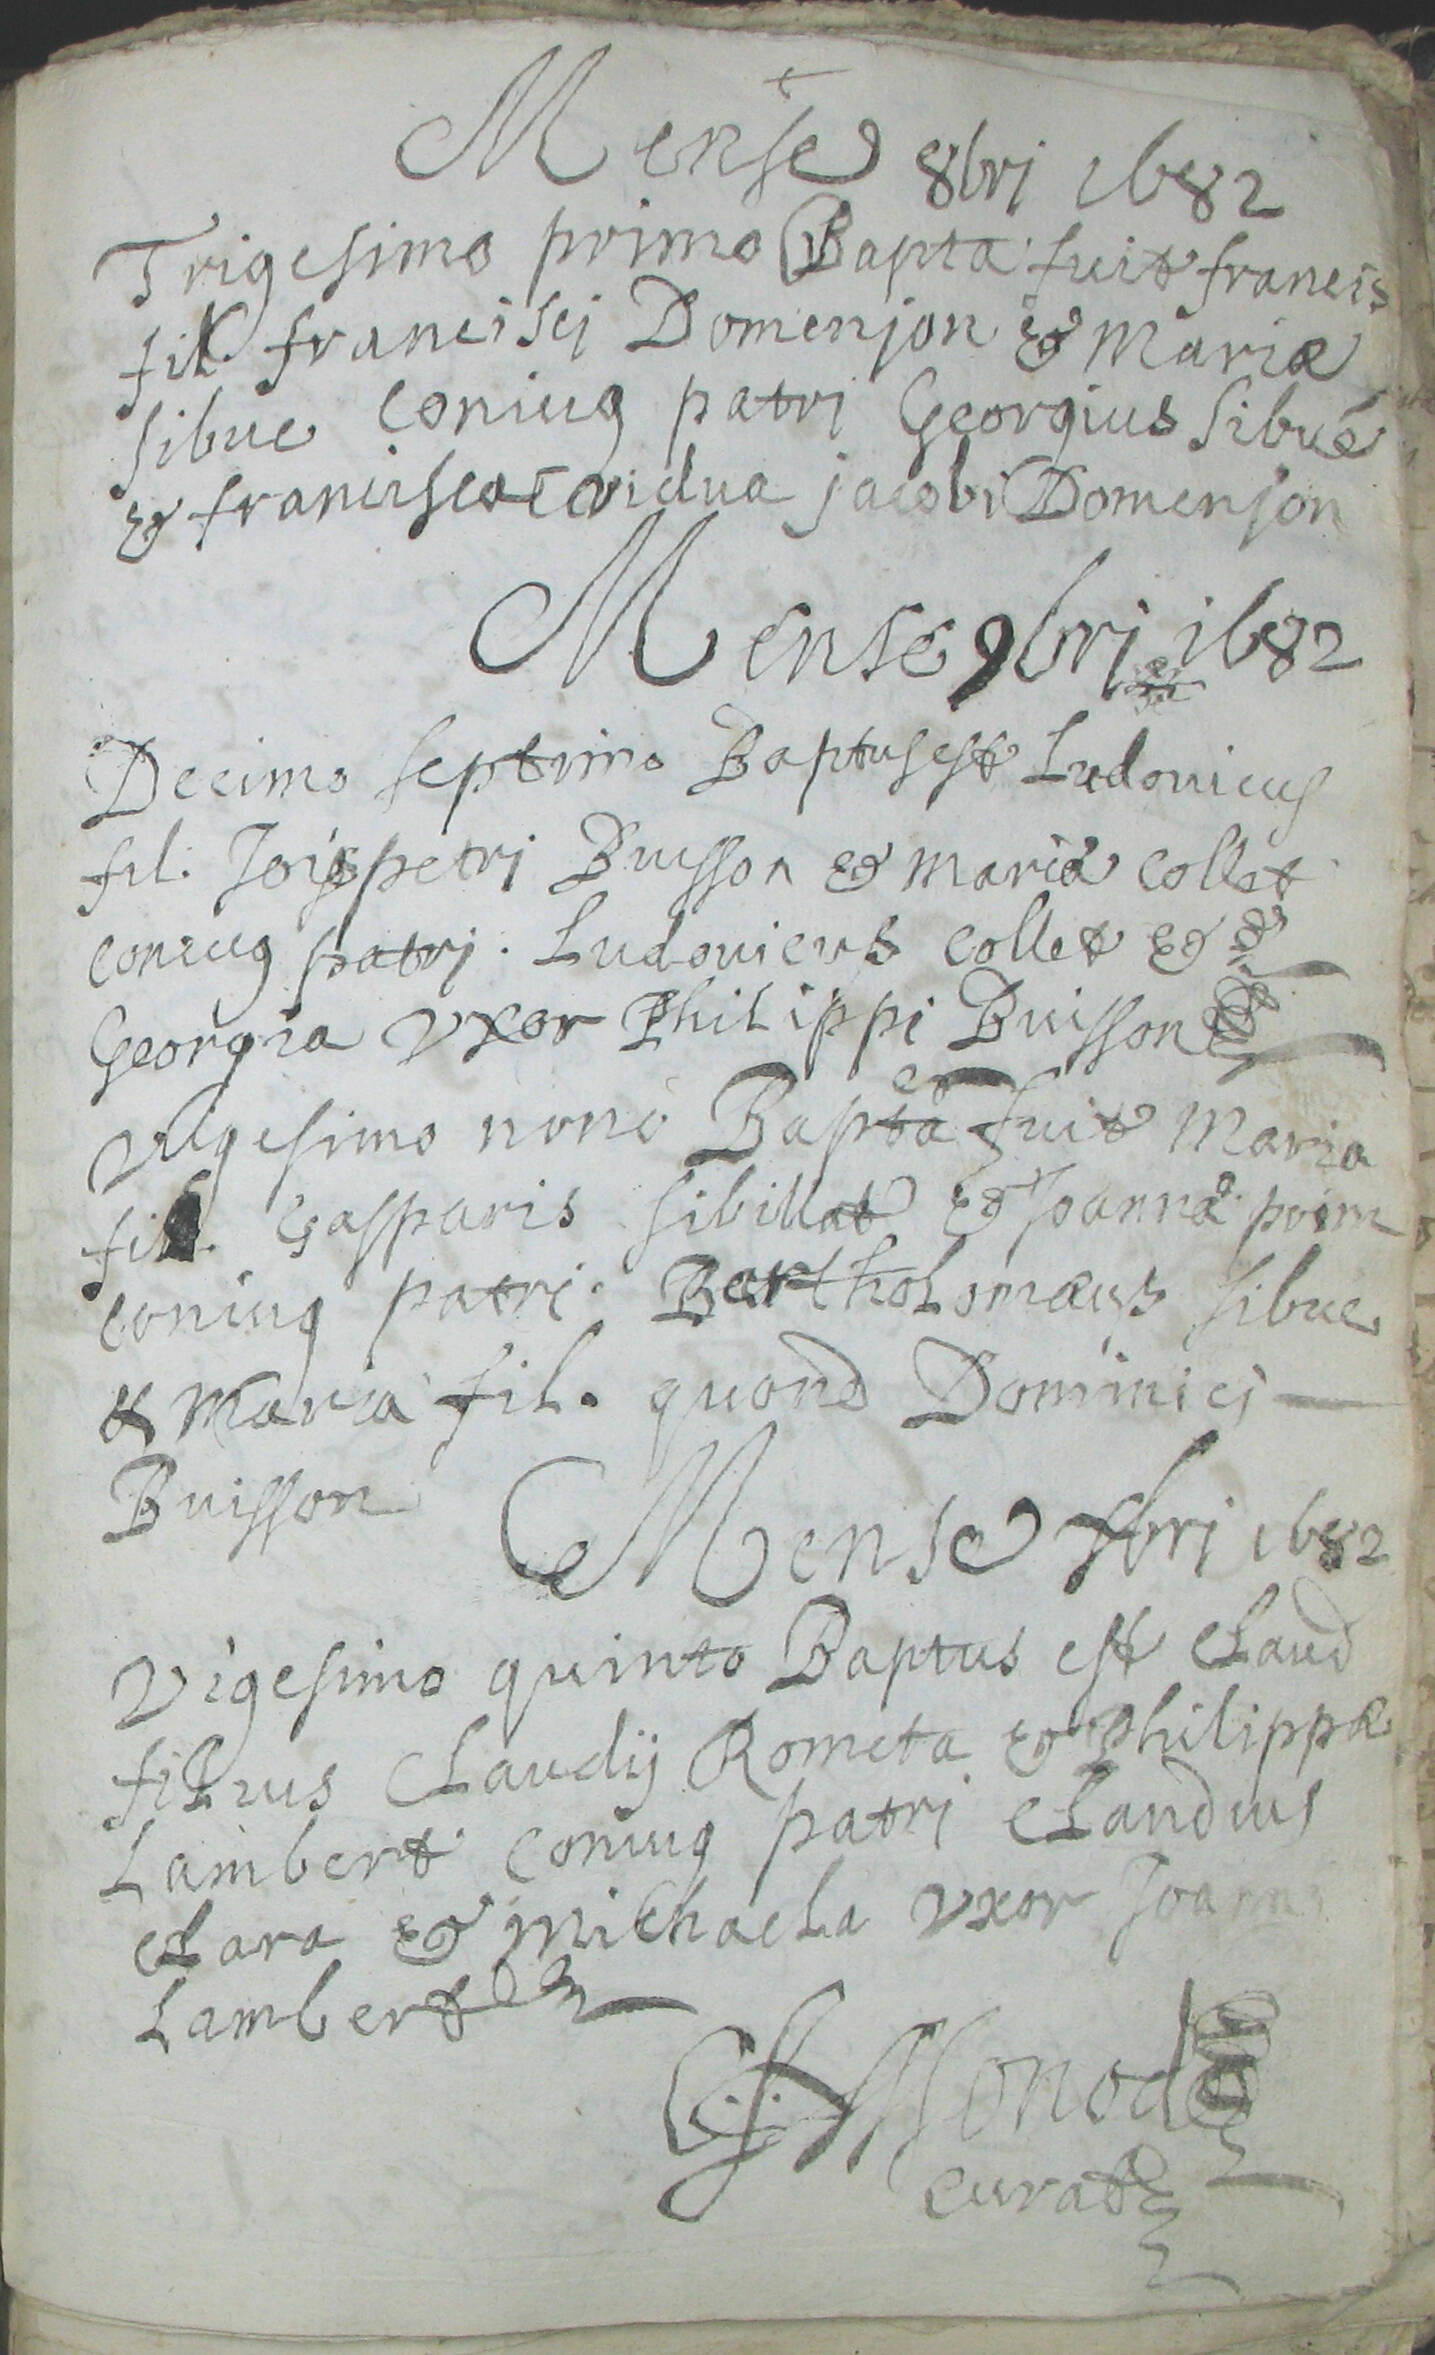 Mense 8brj 1682
Trigesimo primo Bapta fuit francis
fil francisci Domenjon & Mariæ
sibue coniug patrj Georgius sibué
& francisca vidua jacobi Domenjon
Mense 9brj 1682
Decimo septimo Baptus est Ludovicus
fil. Jois petrj Buisson & mariæ collet
coniug patrj. Ludovicus collet &
Georgia vxor Philippi Buisson
Vigesimo nono Bapta fuit Maria
fil. Gasparis sibillat & Joannæ
coniug patri. Bartholomæus sibue
& Maria fil. quond Dominici
Buisson
Mense xbrj 1682
Vigesimo quinto Baptus est Claud
filius Claudij Rometa & Philippæ
Lambert coniug patrj Claudius
Clara & Michaela vxor Joann
Lambert
Monod
curat